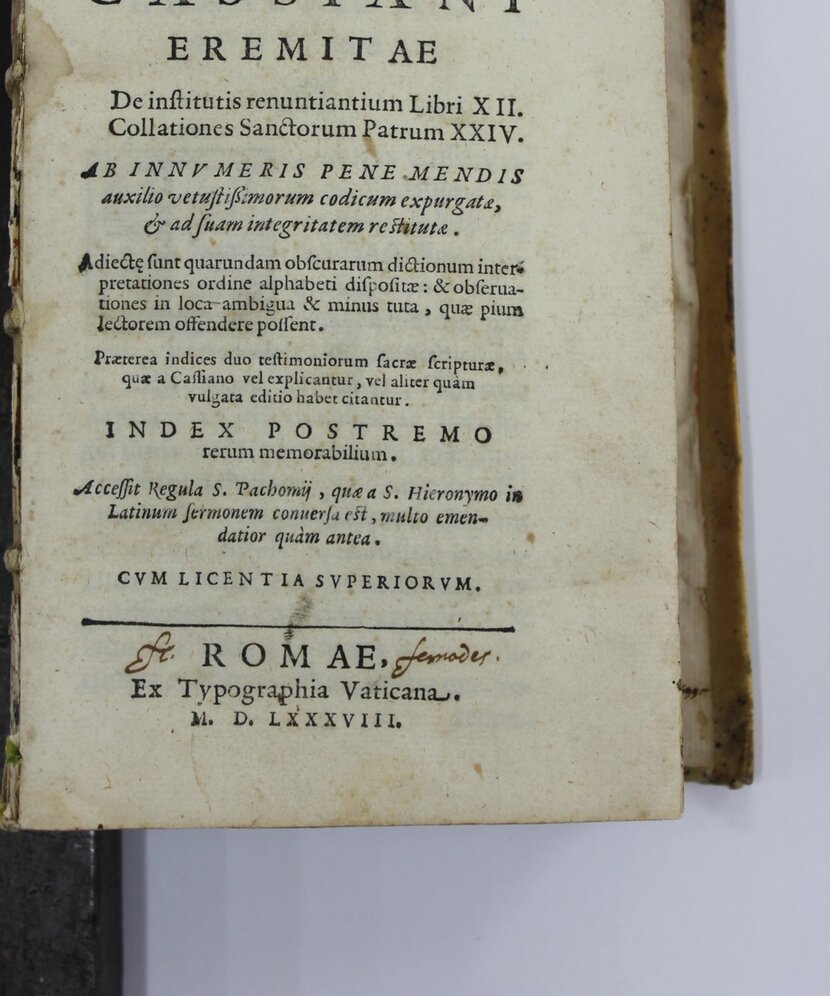 CASSIANI
EREMITAE
De institutis renuntiantium Libri XII.
Collationes Sanctorum Patrum XXIV.
AB INNVMERIS PENE MENDIS
auxilio vetustißimorum codicum expurgatæ,
& ad suam integritatem restitutæ.
Adiectę sunt quarundam obscurarum dictionum inter-
pretationes ordine alphabeti dispositæ: & obserua-
tiones in loca ambigua & minus tuta, quæ pium
lectorem offendere possent.
Præterea indices duo testimoniorum sacræ scripturæ,
quæ a Cassiano vel explicantur, vel aliter quàm
vulgata editio habet citantur.
INDEX POSTREMO
rerum memorabilium.
Accessit Regula S. Pachomij, quæ a S. Hieronymo in
Latinum sermonem conuersa est, multo emen-
datior quàm antea.
CVM LICENTIA SVPERIORVM.
ROMAE,
Ex Typographia Vaticana.
M. D. LXXXVIII.